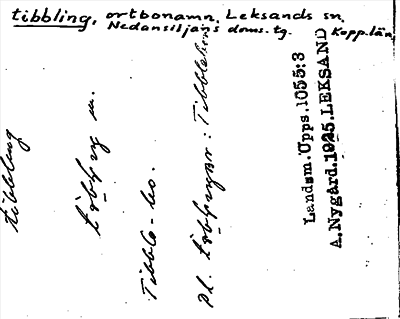 tibbling, ortbonamn, Leksands sn,
Nedansiljans doms. tg. Kopp. län
tibbling
m.
Tibble-bo.
Pl. : Tibblebor
Landsm. Upps. 1055:3
A. Nygård. 1925. LEKSAND